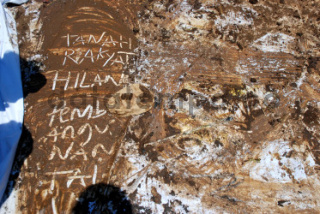 TANAH
RAKYAT
HILANG
PEMB
ANGU
NAN
TAI